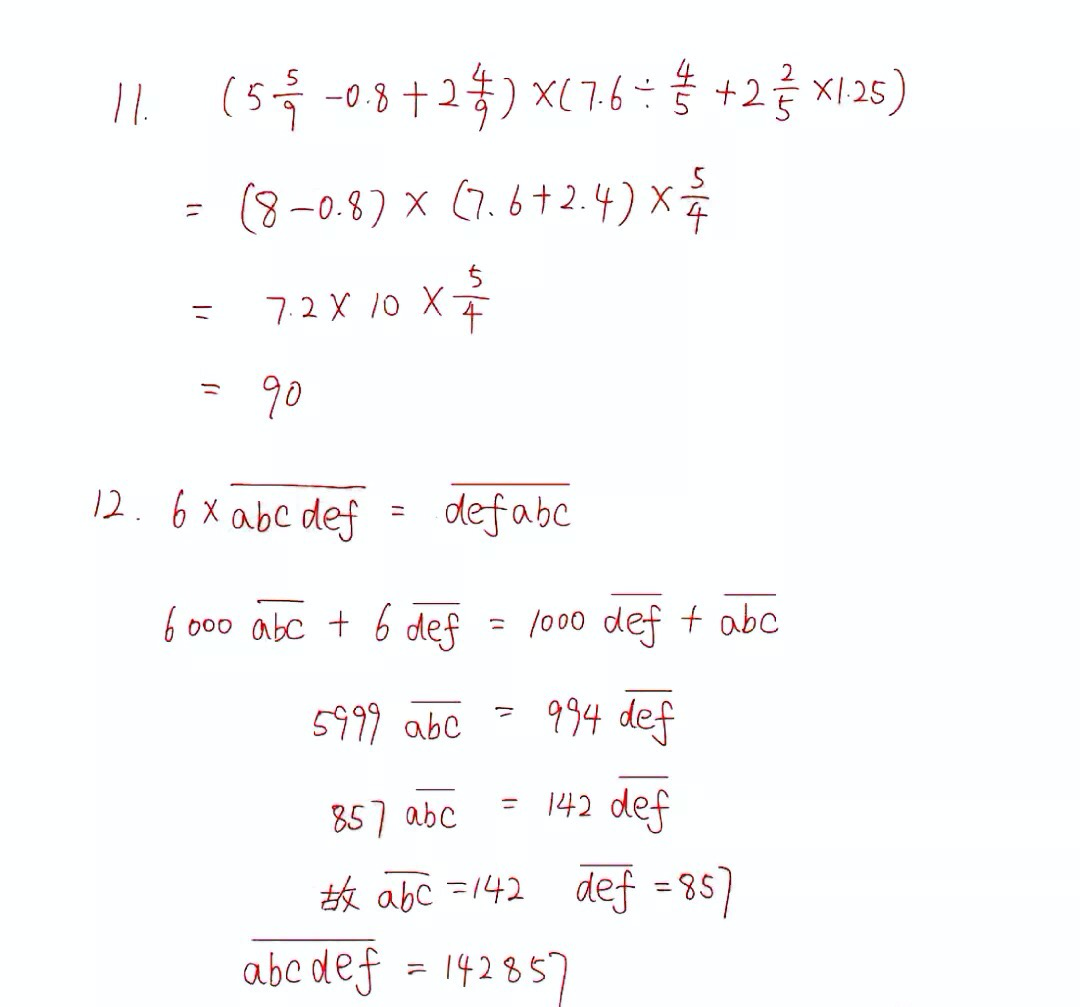 11. (5 5/9 -0.8+2 4/9)×(7.6÷4/5+2 2/5×1.25)
= (8-0.8)×(7.6+2.4)×5/4
= 7.2×10×5/4
= 90
12. 6×a̅b̅c̅d̅e̅f̅ = d̅e̅f̅a̅b̅c̅
6000 a̅b̅c̅ + 6 d̅e̅f̅ = 1000 d̅e̅f̅ + a̅b̅c̅
5999 a̅b̅c̅ = 994 d̅e̅f̅
857 a̅b̅c̅ = 142 d̅e̅f̅
故 a̅b̅c̅ =142 d̅e̅f̅ =857
a̅b̅c̅d̅e̅f̅ = 142857